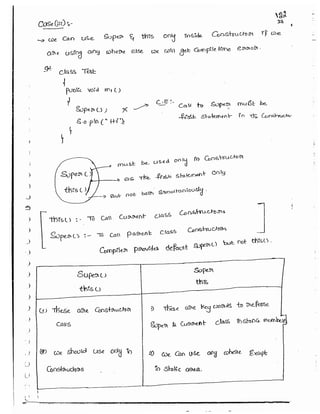 122
32
Case(iii):-
→ we can use Super & this only inside Constructor if we
are using any where else we will get Compile time error.
Ex:
class Test
{
public void m1()
{
Super(); ✗ → C.E:- Call to Super must be
first statement in the Constructor
S.o.pln("Hi");
}
}
Super()
this()
→ must be used only in Constructors
→ as the first statement only
→ But not both Simultaniously
This() :- To call Current class Constructors
Super() :- To call Parent class Constructors
Compiler provides default Super() but not this().
Super()
this()
Super
this
(1) These are Constructor
Calls
1) These are key words to Refer
Super & Current class instance members
(2) we should use only in
Constructors
2) we can use any where Except
in static area.